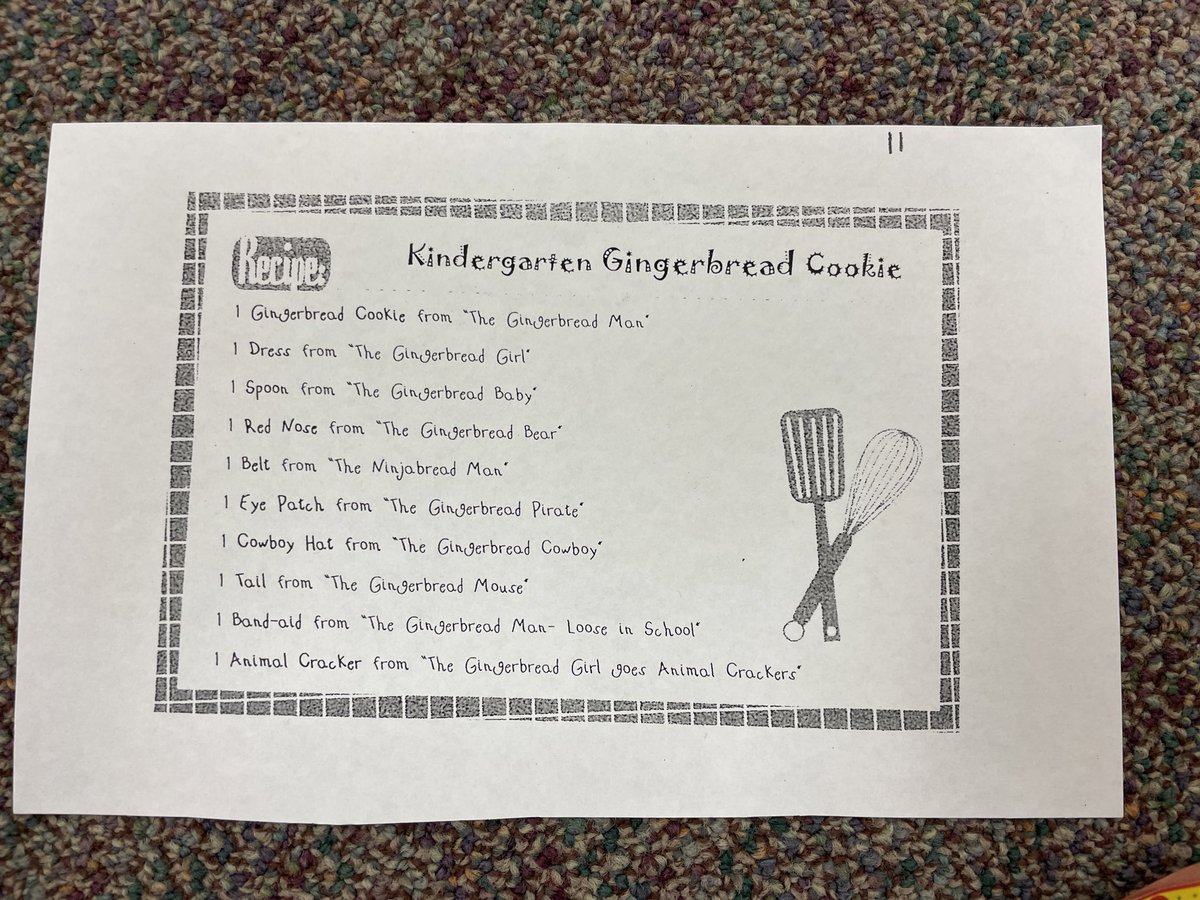 11
Recipe: Kindergarten Gingerbread Cookie
1 Gingerbread Cookie from "The Gingerbread Man"
1 Dress from "The Gingerbread Girl"
1 Spoon from "The Gingerbread Baby"
1 Red Nose from "The Gingerbread Bear"
1 Belt from "The Ninjabread Man"
1 Eye Patch from "The Gingerbread Pirate"
1 Cowboy Hat from "The Gingerbread Cowboy"
1 Tail from "The Gingerbread Mouse"
1 Band-aid from "The Gingerbread Man- Loose in School"
1 Animal Cracker from "The Gingerbread Girl goes Animal Crackers"